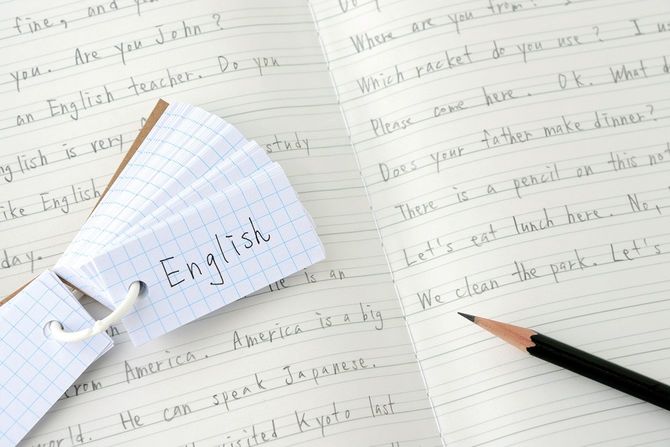 fine, and you?
you. Are you John?
an English teacher. Do you
English is very
study
like English
day.
He is an
from America. America is a big
world. He can speak Japanese.
visited Kyoto last
English
Where are you from?
Which racket do you use? I
Please come here. Ok. What
Does your father make dinner?
There is a pencil on this
Let's eat lunch here. No,
We clean the park. Let's